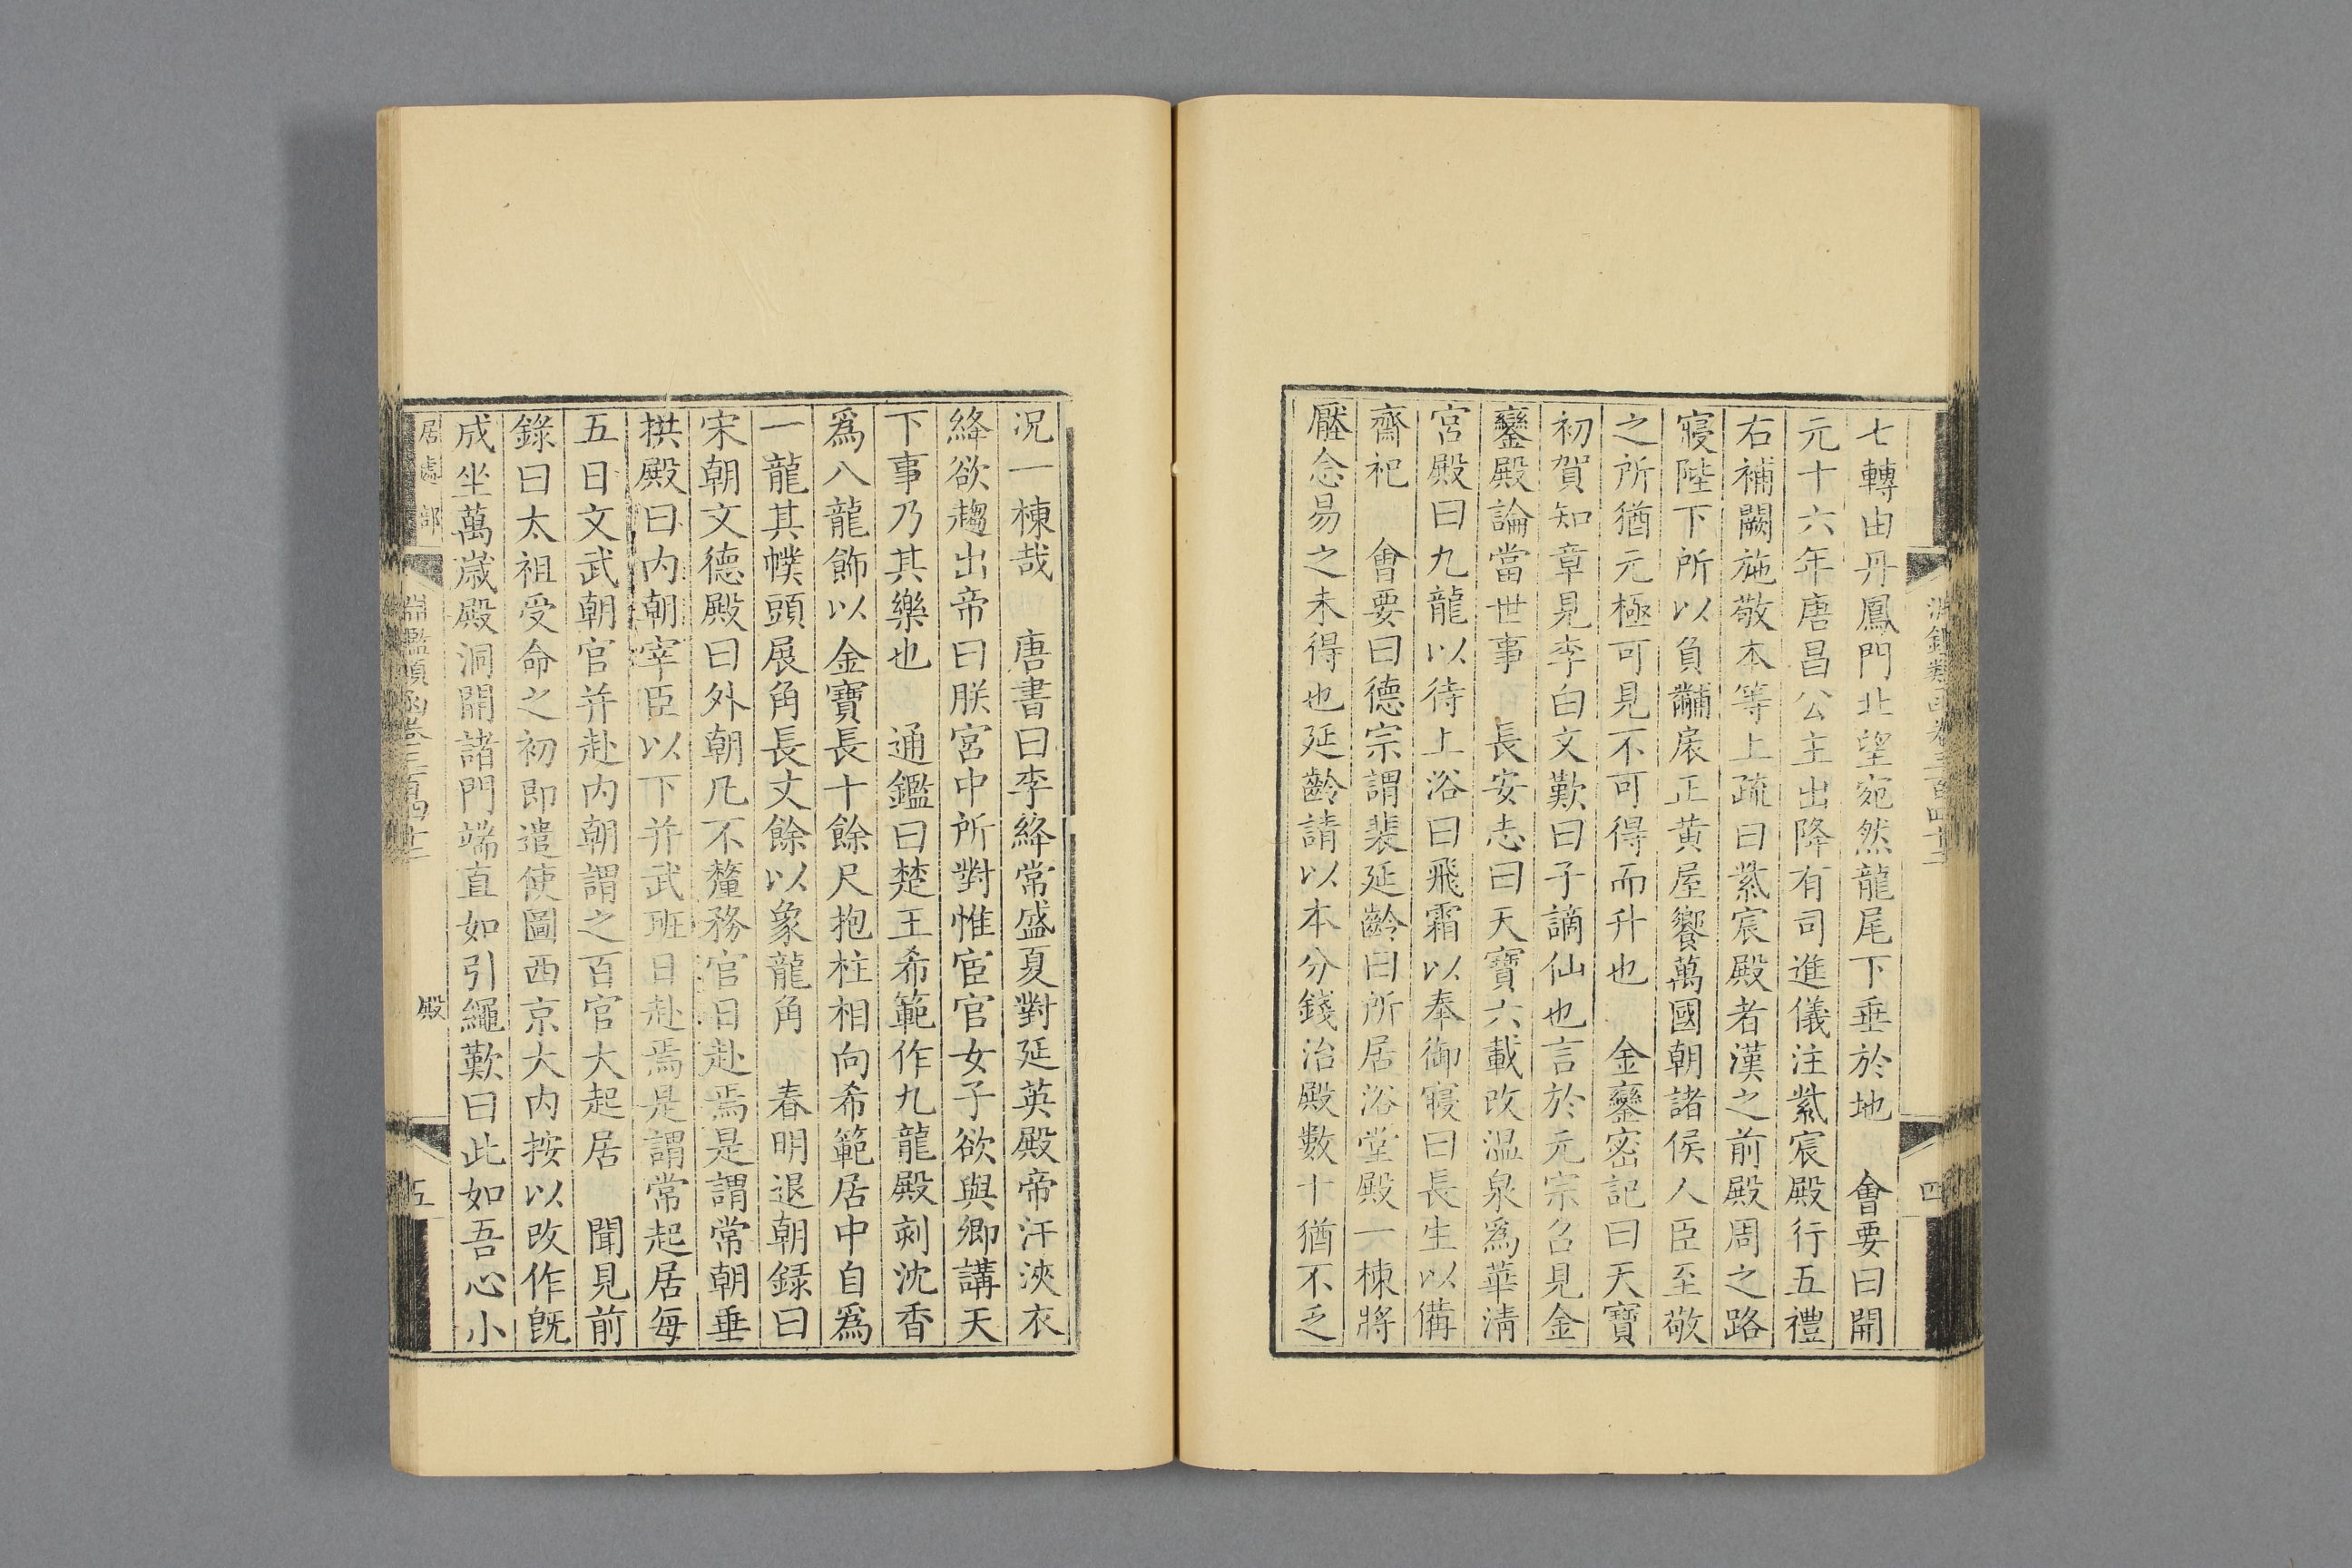 七轉由丹鳳門北望宛然龍尾下垂於地　會要曰開
元十六年唐昌公主出降有司進儀注紫宸殿行五禮
右補闕施敬本等上疏曰紫宸殿者漢之前殿周之路
寢陛下所以負黼扆正黄屋饗萬國朝諸侯人臣至敬
之所猶元極可見不可得而升也　金鑾密記曰天寶
初賀知章見李白文歎曰子謫仙也言於元宗召見金
鑾殿論當世事　長安志曰天寶六載改温泉爲華清
宮殿曰九龍以待上浴曰飛霜以奉御寢曰長生以備
齋祀　會要曰德宗謂裴延齡曰所居浴堂殿一棟將
壓念易之未得也延齡請以本分錢治殿數十猶不乏
況一棟哉　唐書曰李絳常盛夏對延英殿帝汗浹衣
絳欲趨出帝曰朕宮中所對惟宦官女子欲與卿講天
下事乃其樂也　通鑑曰楚王希範作九龍殿刻沈香
爲八龍飾以金寶長十餘尺抱柱相向希範居中自爲
一龍其幞頭展角長丈餘以象龍角　春明退朝録曰
宋朝文德殿曰外朝凡不釐務官日赴焉是謂常朝垂
拱殿曰内朝宰臣以下并武班日赴焉是謂常起居每
五日文武朝官并赴内朝謂之百官大起居　聞見前
錄曰太祖受命之初即遣使圖西京大内按以改作旣
成坐萬歲殿洞開諸門端直如引繩歎曰此如吾心小
居處部　淵鑑類函卷三百四十二　殿　五